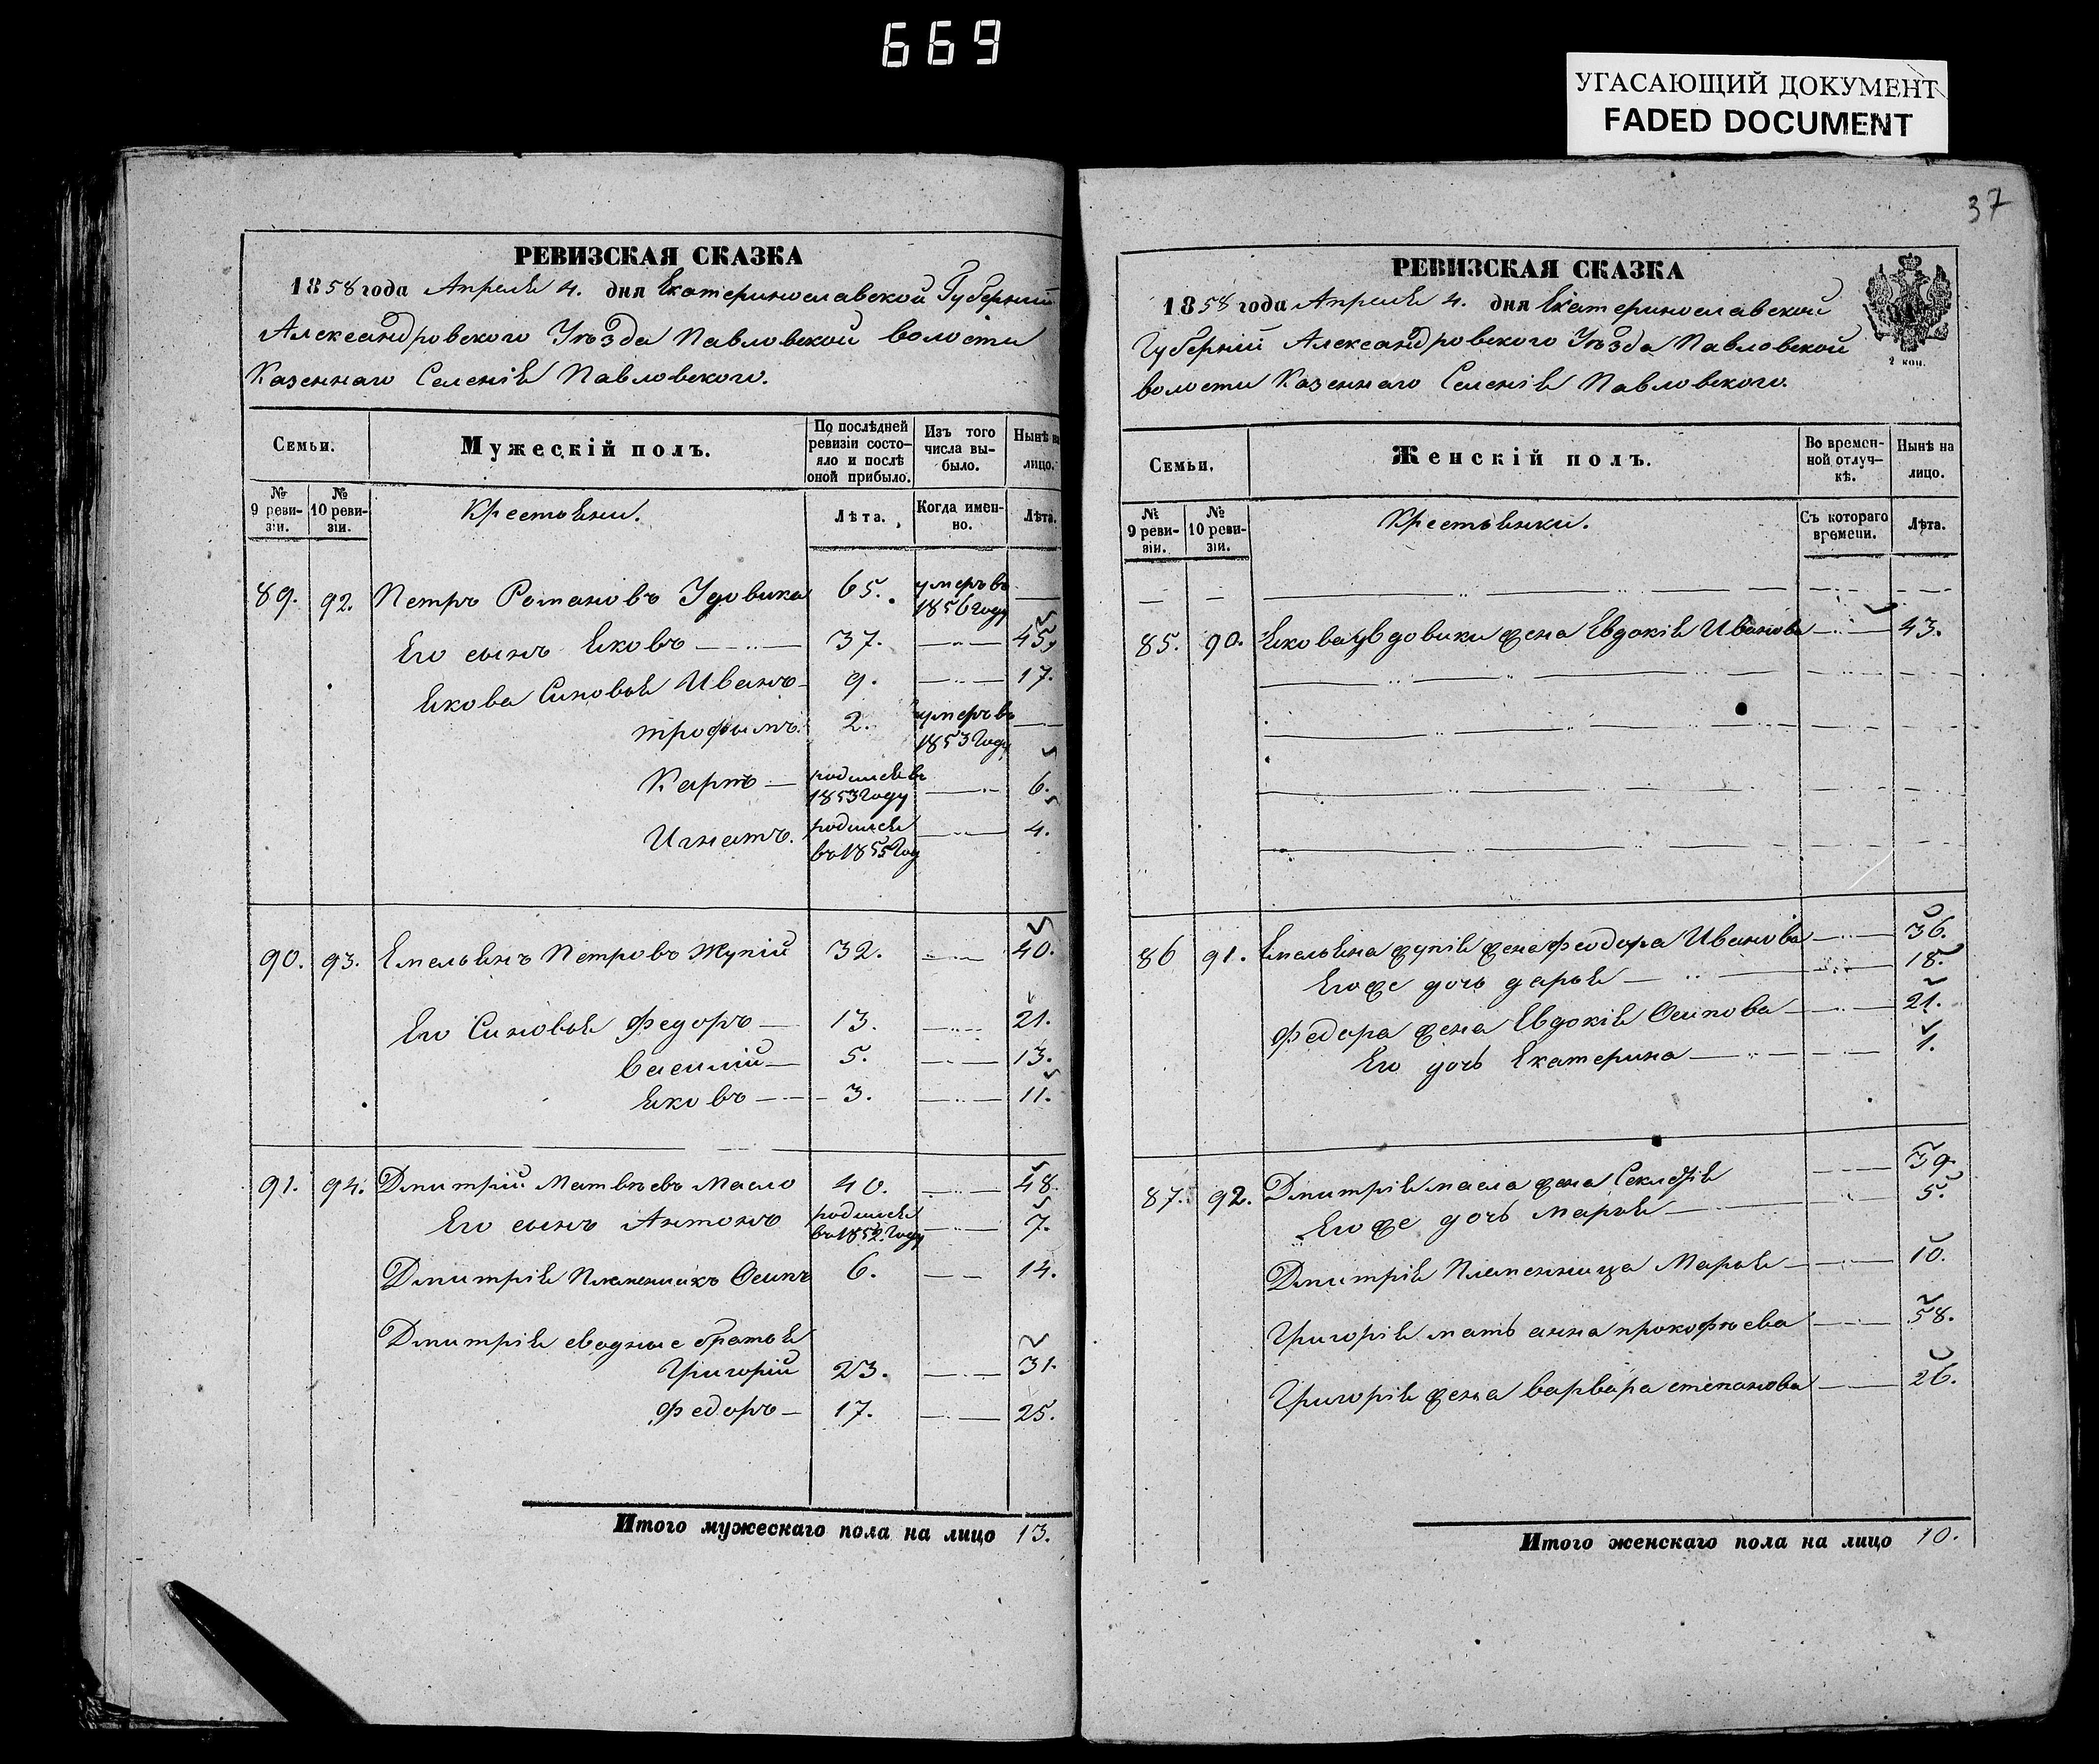 669
УГАСАЮЩИЙ ДОКУМЕНТ
FADED DOCUMENT
РЕВИЗСКАЯ СКАЗКА
1858 года Апреля 4. дня Екатеринославской Губерніи
Александровского Уѣзда Павловской волости
Казеннаго Селенія Павловского.
Семьи.
Мужескій полъ.
По послѣдней ревизіи состояло и послѣ оной прибыло.
Изъ того числа выбыло.
Нынѣ на лицо.
№ 9 ревизіи.
№ 10 ревизіи.
Крестьяни.
Лѣта.
Когда именно.
Лѣта.
89. 92. Петръ Романовъ Удовика 65. умеръ въ 1856 году —
Его сынъ Яковъ — 37. — 45.
Якова Синовья Иванъ 9. — 17.
трофимъ. 2. умеръ въ 1853 году —
Карпъ — родился въ 1853 году — 6.
Игнатъ. родился въ 1855 год — 4.
90. 93. Емельянъ Петровъ Жупій 32. — 40.
Его Синовья Федоръ — 13. — 21.
Василій — 5. — 13.
Яковъ — 3. — 11.
91. 94. Дмитрій Матвѣевъ Масло 40. — 48.
Его сынъ Антонъ родился въ 1852. году — 7.
Дмитрія Племеникъ Осипъ 6. — 14.
Дмитрія сводные братья
Григорій 23. — 31.
Федоръ — 17. — 25.
Итого мужескаго пола на лицо 13.
37
РЕВИЗСКАЯ СКАЗКА
1858 года Апреля 4. дня Екатеринославской
Губерніи Александровского Уѣзда Павловской
волости Казеннаго Селенія Павловского.
2 коп.
Семьи.
Женскій полъ.
Во временной отлучкѣ.
Нынѣ на лицо.
№ 9 ревизіи.
№ 10 ревизіи.
Крестьянки.
Съ котораго времени.
Лѣта.
85. 90. Якова удовики жена Евдокія Иванова — 43.
86 91. Емельяна жупія жена феодора Иванова — 36.
Егоже дочь дарья — 18.
Федора жена Евдокія Осипова — 21.
Его дочь Екатерина — 1.
87. 92. Дмитрія масла жена Секлетія — 39.
Егоже дочь марья — 5.
Дмитрія Племенница Марья — 10.
Григорія мать анна прокофьева — 58.
Григорія жена варвара степанова — 26.
Итого женскаго пола на лицо 10.